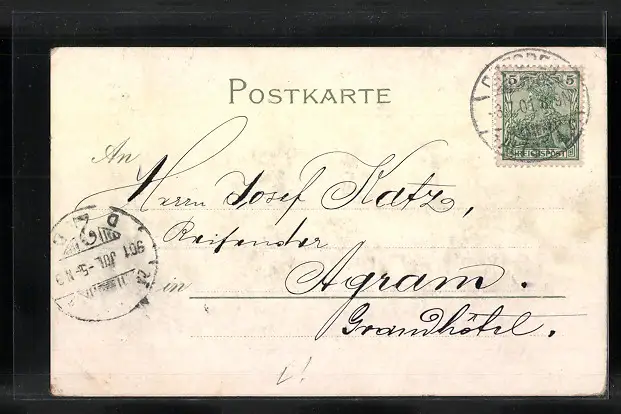 POSTKARTE
5 5
REICHSPOST
An
Herrn Josef Katz,
Reisender
in Agram.
Grandhôtel.
901 JUL